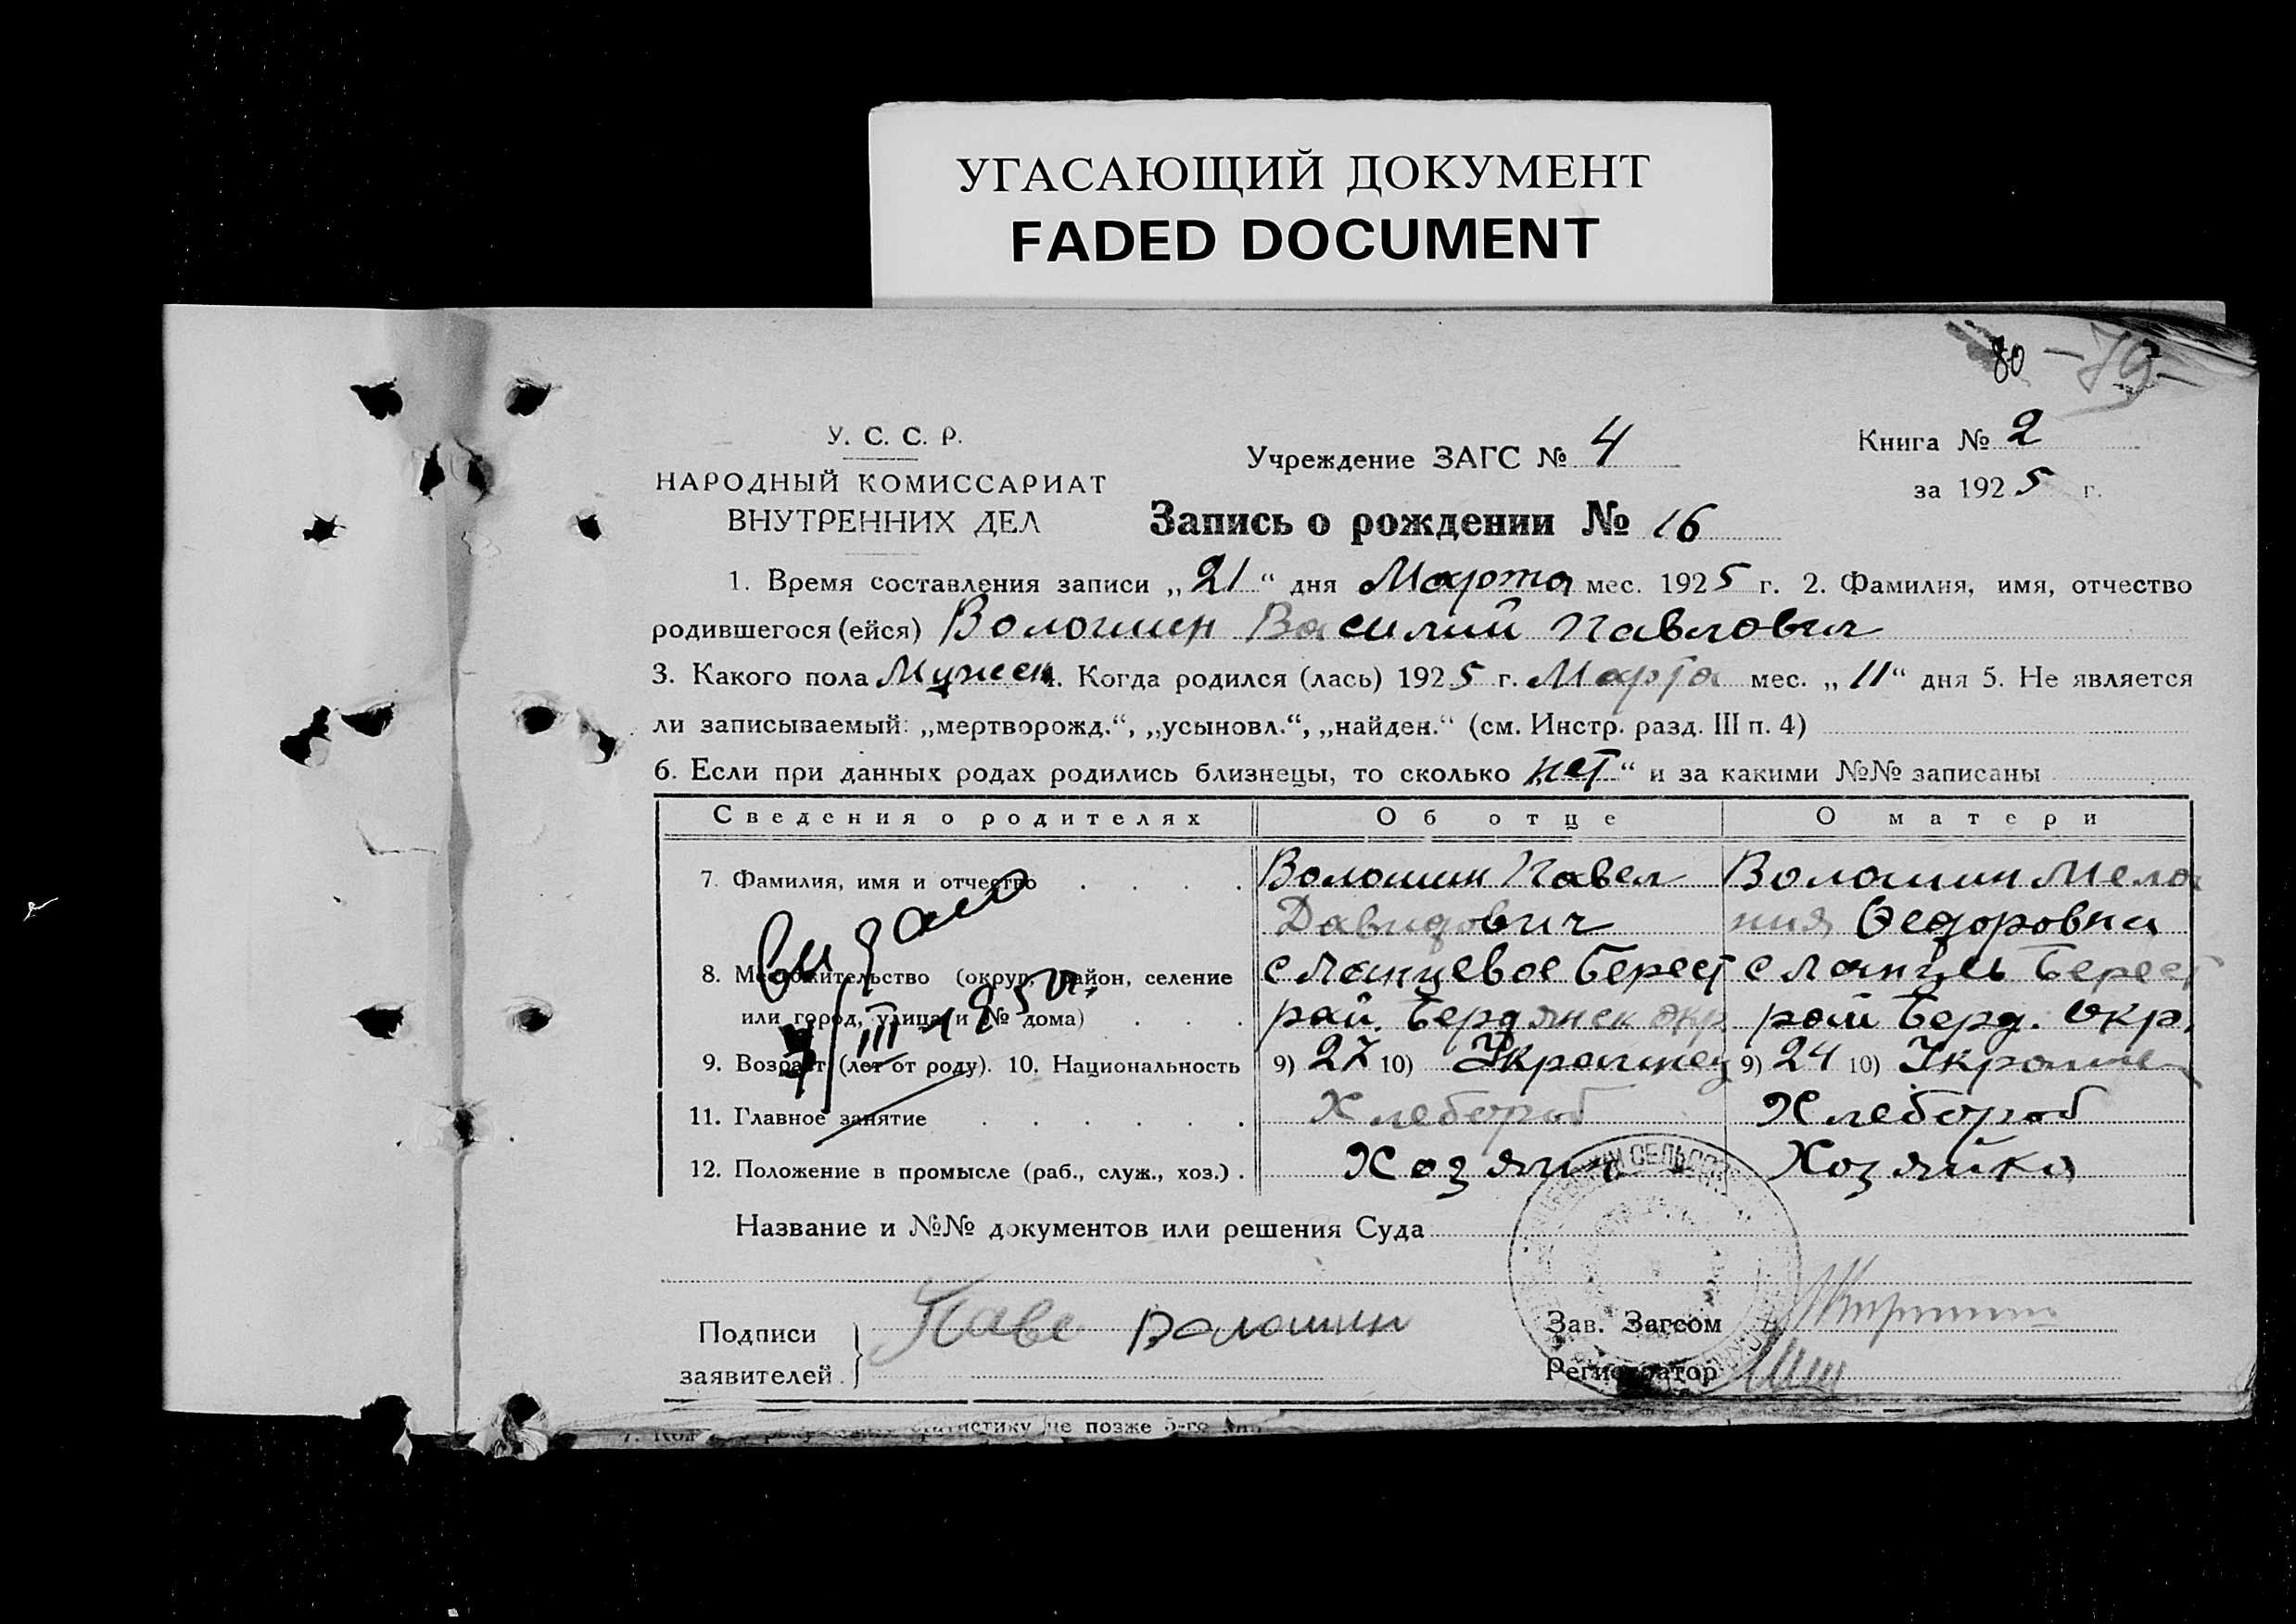 УГАСАЮЩИЙ ДОКУМЕНТ
FADED DOCUMENT
80 - 79 -
У. С. С. Р.
НАРОДНЫЙ КОМИССАРИАТ
ВНУТРЕННИХ ДЕЛ
Учреждение ЗАГС № 4
Книга № 2
за 1925 г.
Запись о рождении № 16
1. Время составления записи „21“ дня Марта мес. 1925 г. 2. Фамилия, имя, отчество
родившегося (ейся) Волошин Василий Павлович
3. Какого пола Мужск 4. Когда родился (лась) 1925 г. Марта мес. „11“ дня 5. Не является
ли записываемый: „мертворожд.“, „усыновл.“, „найден.“ (см. Инстр. разд. III п. 4)
6. Если при данных родах родились близнецы, то сколько нет“ и за какими №№ записаны
Сведения о родителях Об отце О матери
7. Фамилия, имя и отчество Волошин Павел Волошин Мела
Давидович ния Федоровна
8. Местожительство (округ, район, селение с Ланцевое Берест с Ланцев Берест
или город, улица и № дома) рай. Бердянск окр рай Берд. Окр.
9. Возраст (лет от роду). 10. Национальность 9) 27 10) Украинец 9) 24 10) Украинец
11. Главное занятие Хлебороб Хлебороб
12. Положение в промысле (раб., служ., хоз.) Хозяин Хозяйка
Название и №№ документов или решения Суда
Подписи
заявителей
Паве Волошин
Зав. Загсом
Регистратор
не позже 5-го